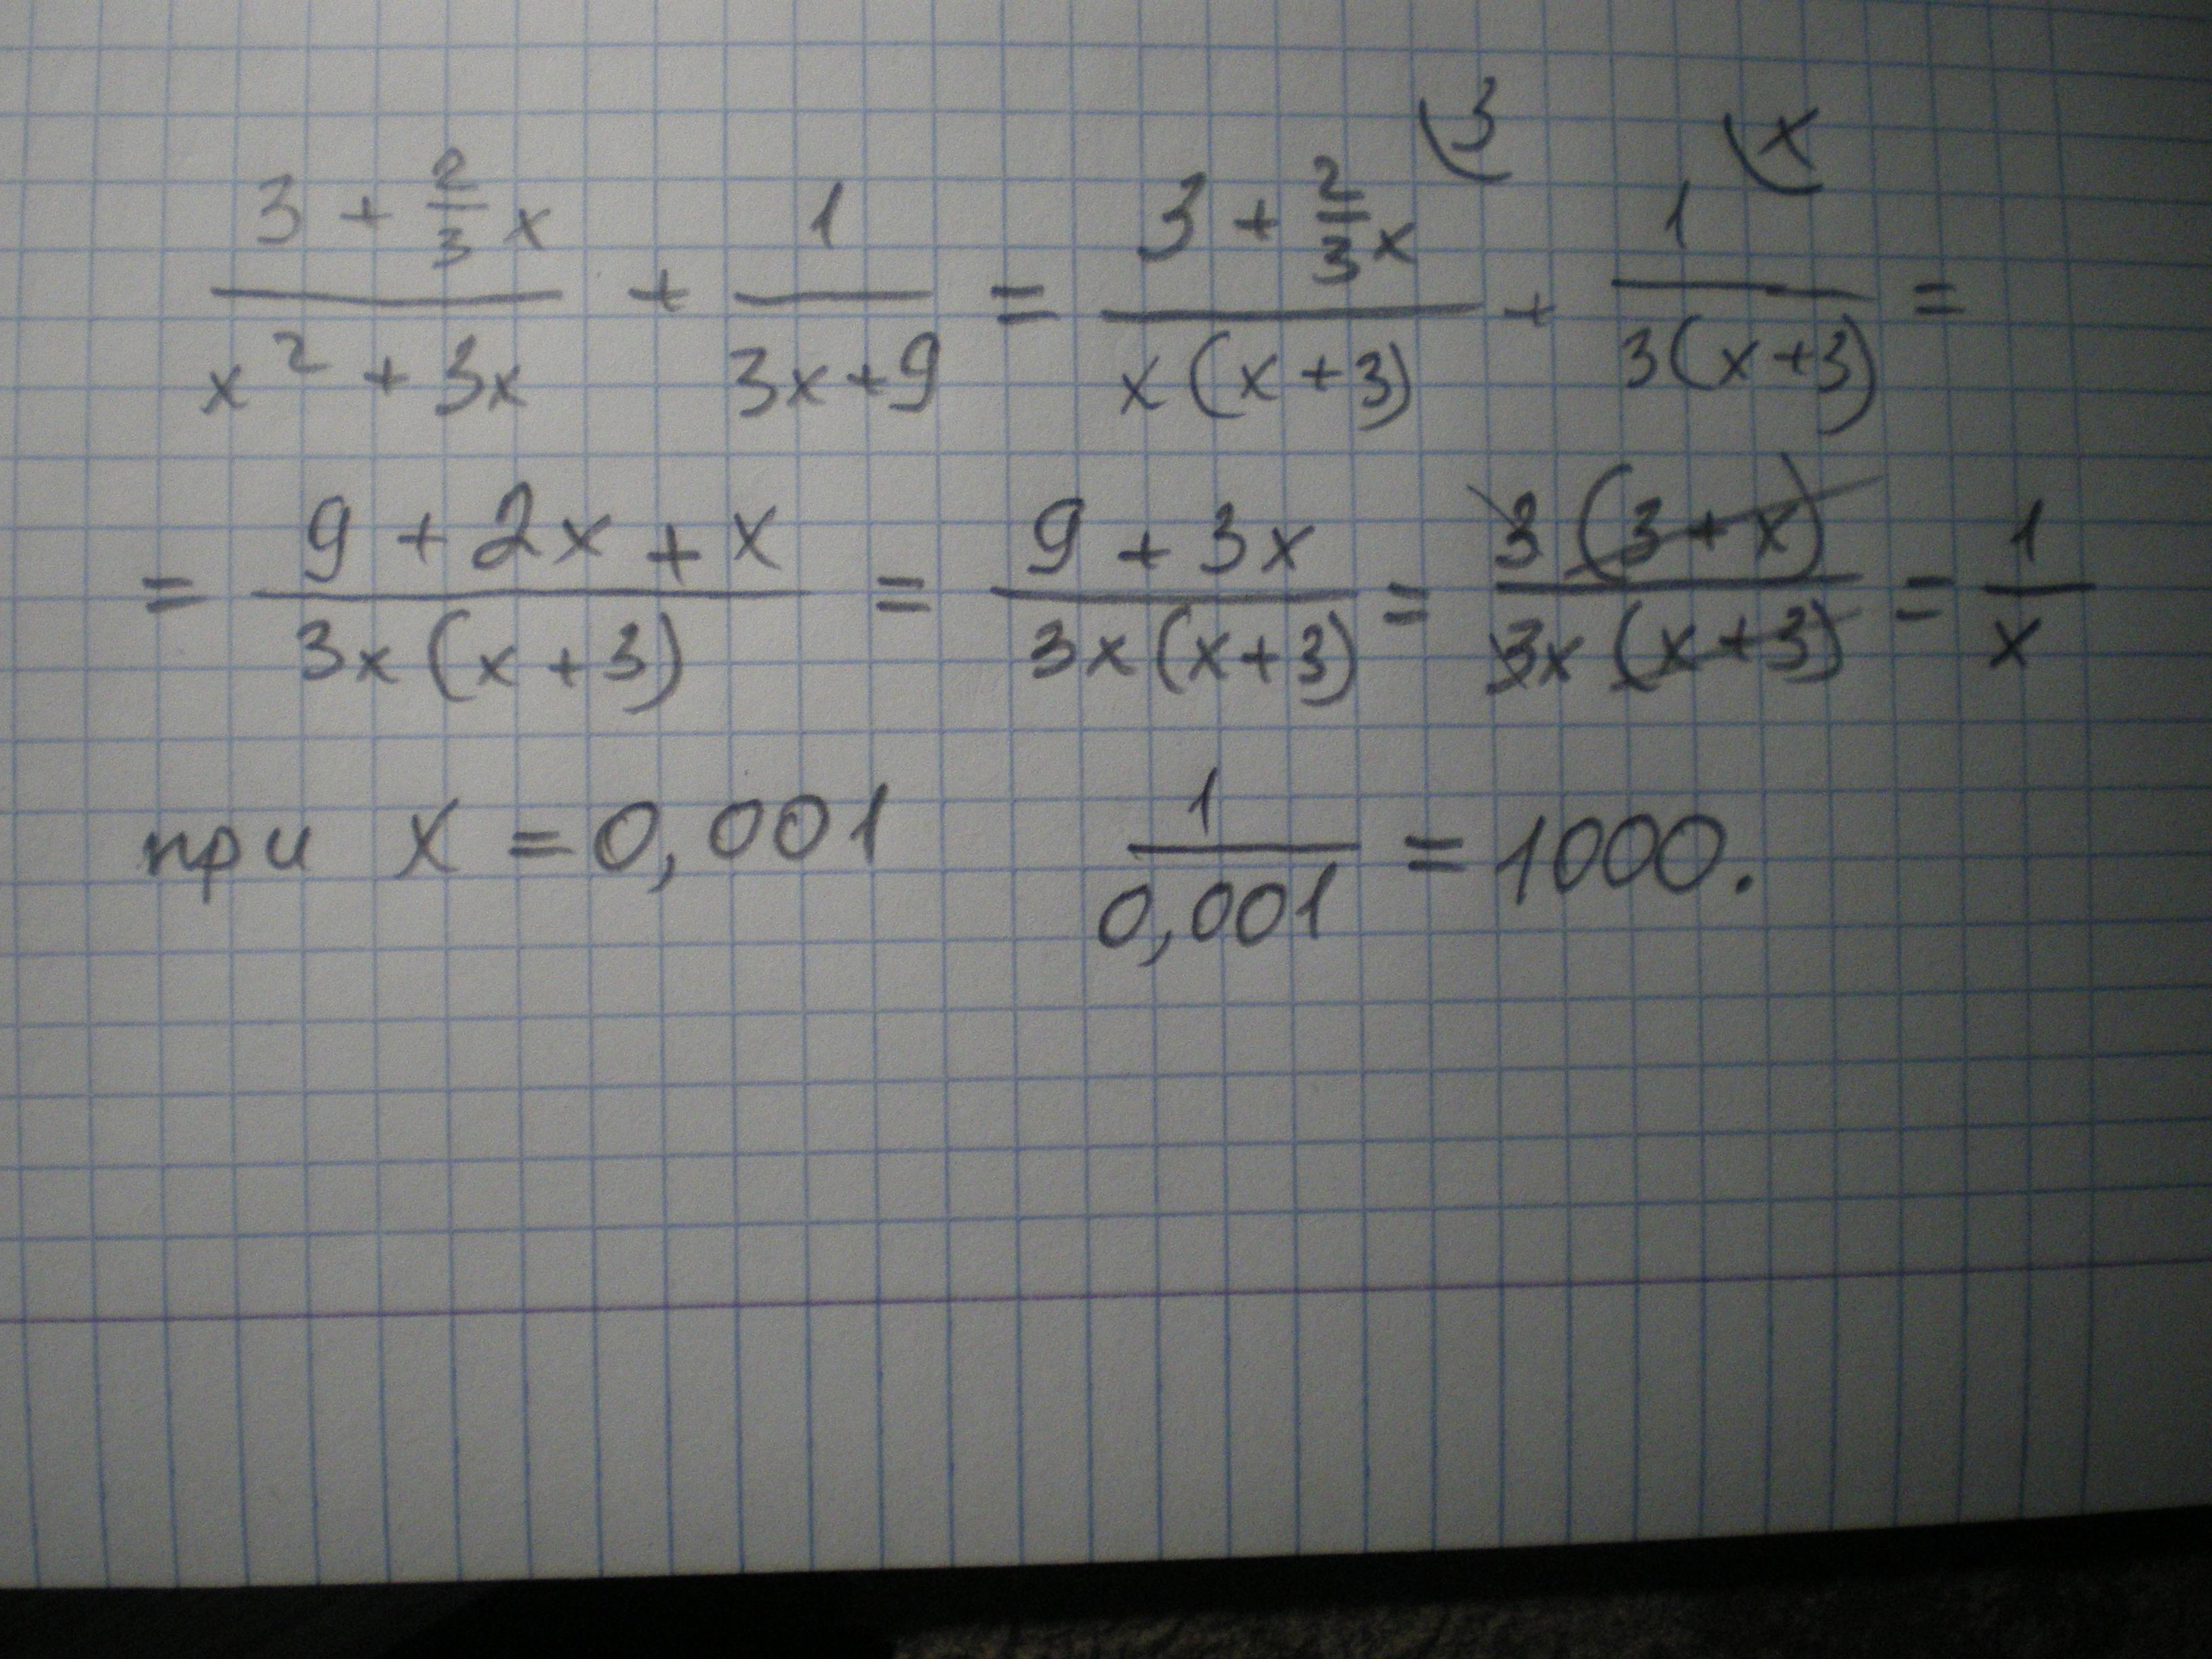 (3 + 2/3 x)/(x² + 3x) + 1/(3x+9) = (3 + 2/3 x)/(x(x+3)) \3 + 1/(3(x+3)) \x =
= (9 + 2x + x)/(3x(x+3)) = (9 + 3x)/(3x(x+3)) = (3(3+x))/(3x(x+3)) = 1/x
при x = 0,001 1/0,001 = 1000.